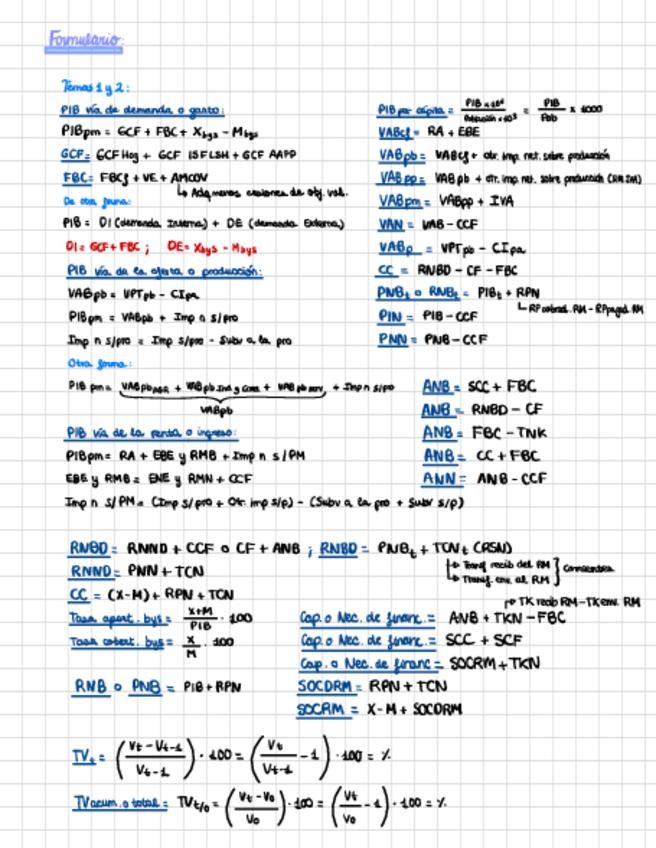 Formulario:
Temas 1 y 2:
PIB vía de demanda o gasto:
PIBpm = GCF + FBC + Xbys - Mbys
GCF = GCF Hog + GCF ISFLSH + GCF AAPP
FBC = FBCf + VE + AMCOV
↳ Adq menos cesiones de obj. val.
De otra forma:
PIB = DI (demanda Interna) + DE (demanda Externa)
DI = GCF + FBC ; DE = Xbys - Mbys
PIB vía de la oferta o producción:
VABpb = VPTpb - CIpa
PIBpm = VABpb + Imp n s/pro
Imp n s/pro = Imp s/pro - Subv a la pro
Otra forma:
PIB pm = VABpb AGR + VABpb Ind y Cons + VABpb serv + Imp n s/pro
VABpb
PIB vía de la renta o ingreso:
PIBpm = RA + EBE y RMB + Imp n s/PM
EBE y RMB = ENE y RMN + CCF
Imp n s/PM = (Imp s/pro + Otr. imp s/p) - (Subv a la pro + Subv s/p)
PIB per cápita = PIB x 10⁶ / Población x 10³ = PIB / Pob x 1000
VABcf = RA + EBE
VABpb = VABcf + otr. imp. net. sobre producción
VABpp = VABpb + otr. imp. net. sobre producción
VABpm = VABpp + IVA
VAN = VAB - CCF
VABp = VPTpb - CIpa
CC = RNBD - CF - FBC
PNBt o RNBt = PIBt + RPN
PIN = PIB - CCF
PNN = PNB - CCF
ANB = SCC + FBC
ANB = RNBD - CF
ANB = FBC - TNK
ANB = CC + FBC
ANN = ANB - CCF
RNBD = RNND + CCF o CF + ANB ; RNBD = PNBt + TCNt (RSN)
↳ Transf recib del RM
↳ Transf env. al RM } Corrientes
RNND = PNN + TCN
CC = (X-M) + RPN + TCN
Tasa apert. bys = X+M / PIB · 100
Tasa cobert. bys = X / M · 100
RNB o PNB = PIB + RPN
↱ TK recib RM - TK env. RM
Cap. o Nec. de financ. = ANB + TKN - FBC
Cap. o Nec. de financ. = SCC + SCF
Cap. o Nec. de financ = SOCRM + TKN
SOCDRM = RPN + TCN
SOCRM = X - M + SOCDRM
TVt = (Vt - Vt-1 / Vt-1) · 100 = (Vt / Vt-1 - 1) · 100 = %
TVacum. o total = TVt/0 = (Vt - V0 / V0) · 100 = (Vt / V0 - 1) · 100 = %